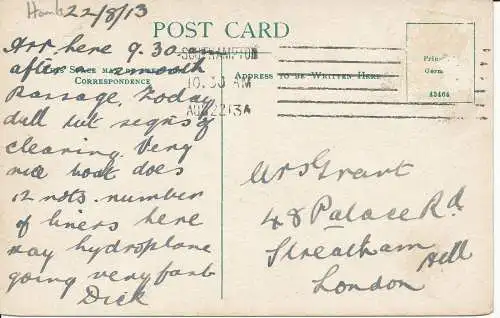 22/8/13
POST CARD
Arr. here 9.30 am
after a smooth
THIS SPACE MAY BE USED FOR
CORRESPONDENCE
Passage, Today
dull but signs of
clearing. Very
nice boat does
12 nots. number
of liners here
saw hydroplane
going very fast
Dick
SOUTHAMPTON
10.30 AM
AUG 22 13A
ADDRESS TO BE WRITTEN HERE
Prin
Germ
43464
Mrs Grant
48 Palace Rd
Streatham Hill
London